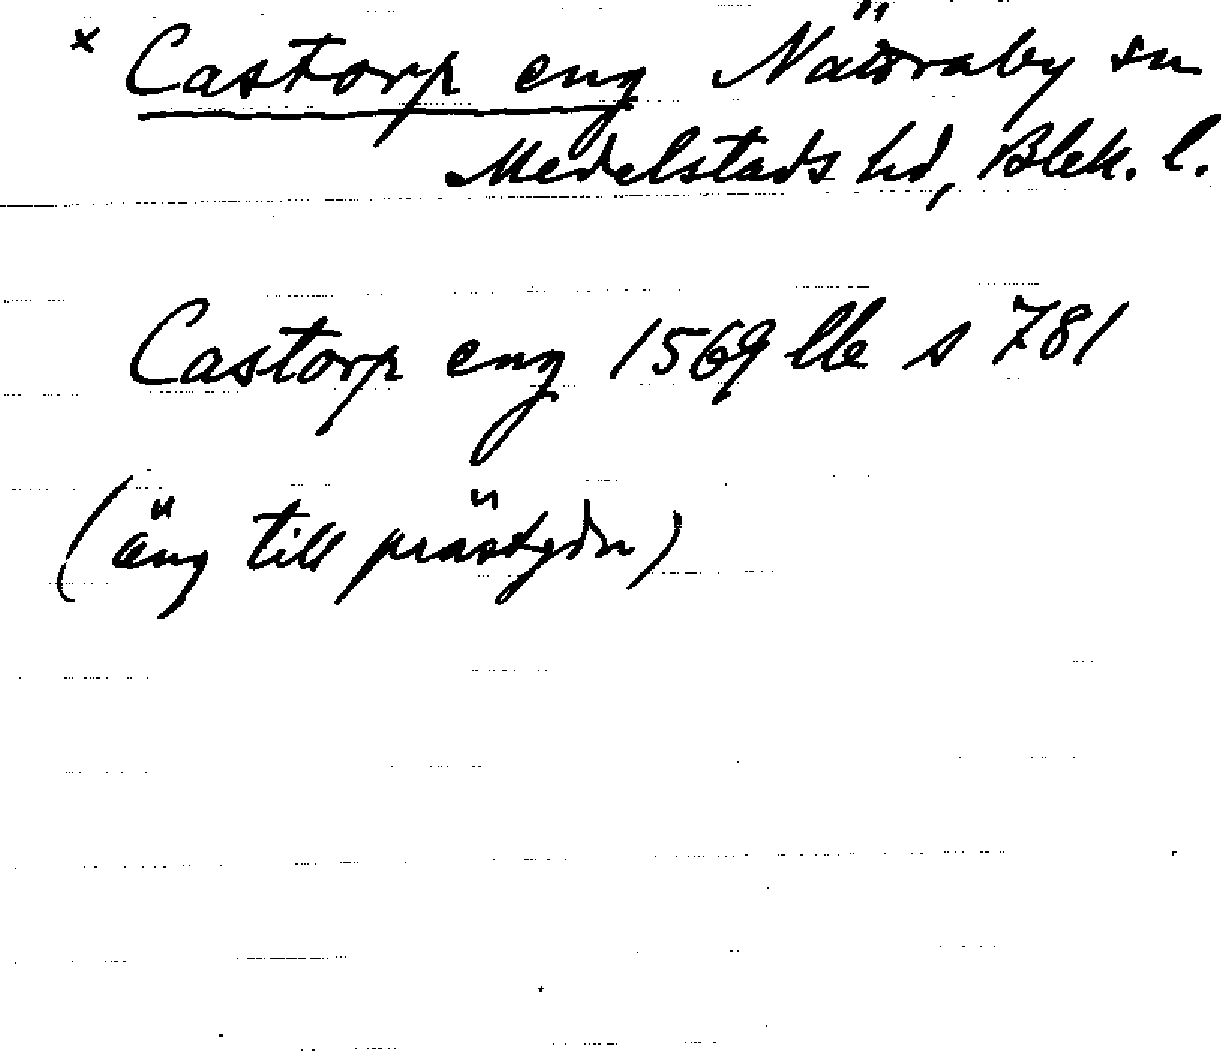 x Castorp eng Nättraby sn
Medelstads hd, Blek. l.
Castorp eng 1569 lle s 781
(äng till prästgdn)